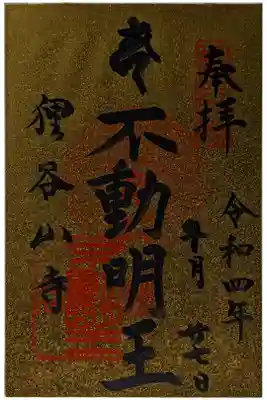 奉拝
令和四年
月廿七日
不動明王
狸谷山寺